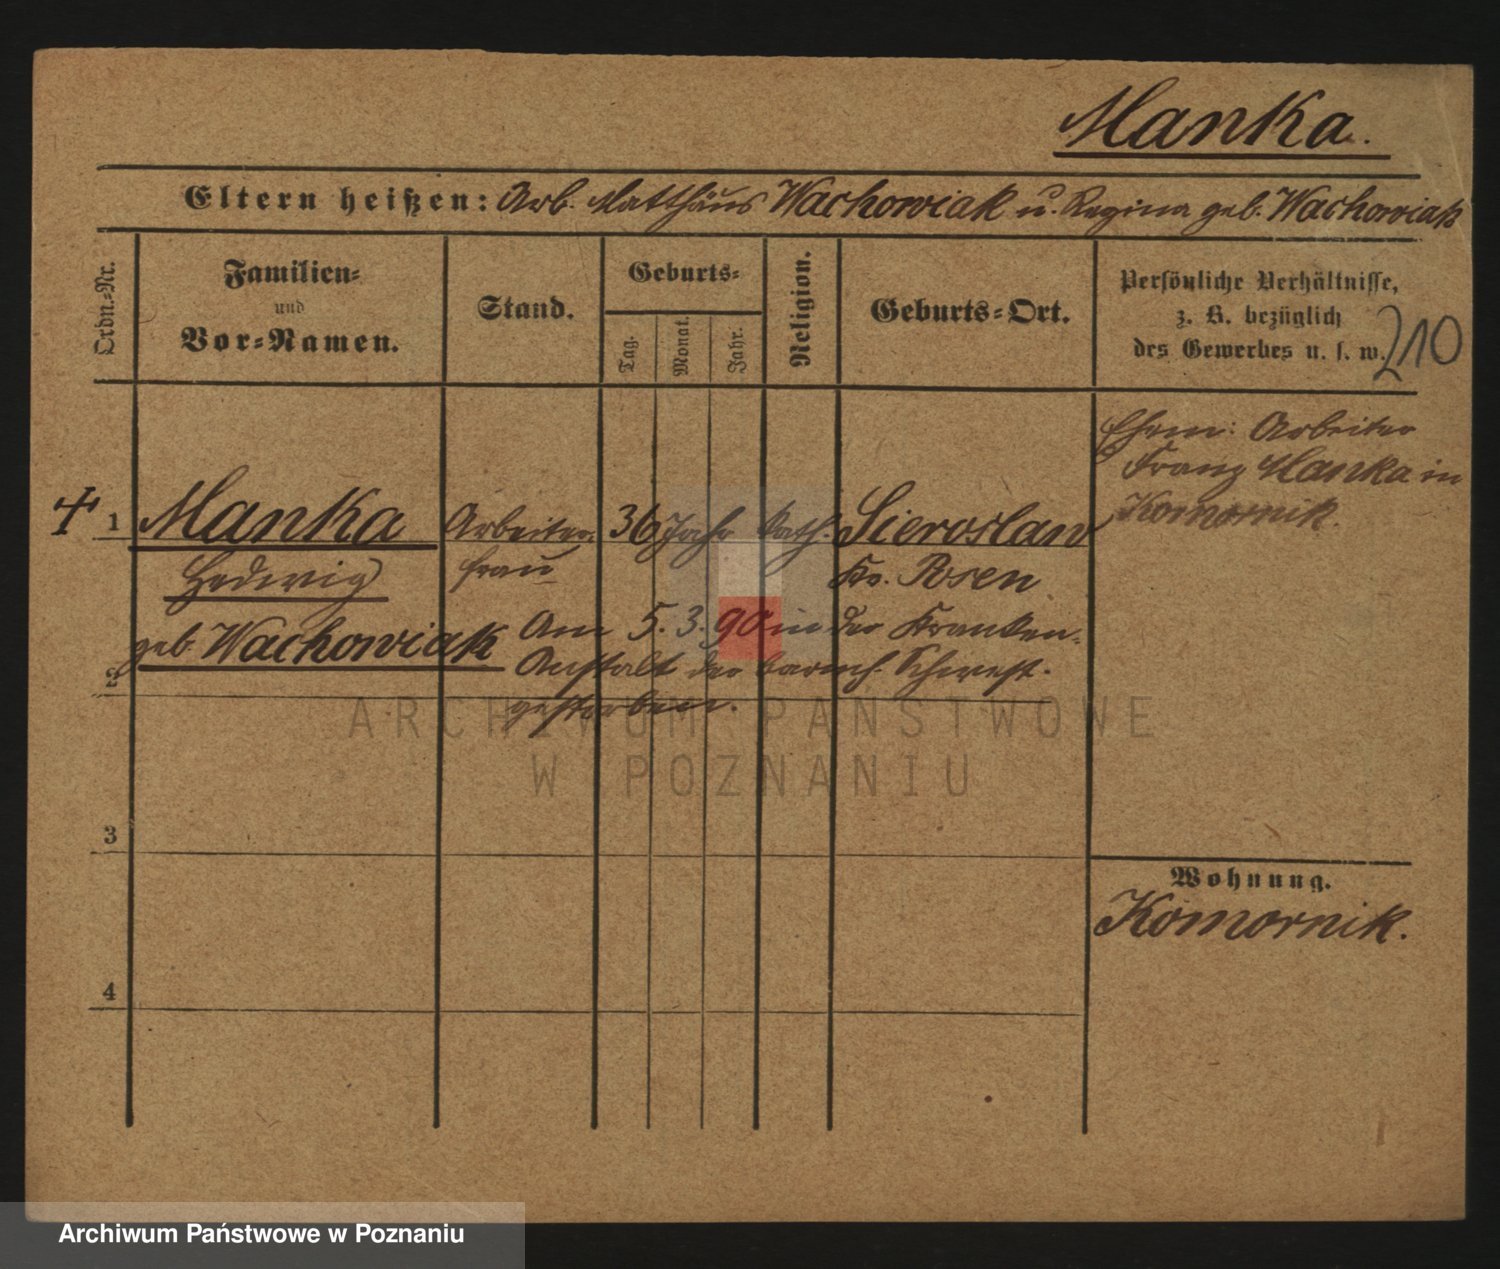 Manka.
Eltern heißen: Arb. Matthäus Wachowiak u. Regina geb. Wachowiak
Ordn.-Nr.
Familien-
und
Vor-Namen.
Stand.
Geburts-
Tag.
Monat.
Jahr.
Religion.
Geburts-Ort.
Persönliche Verhältnisse,
z. B. bezüglich
des Gewerbes u. s. w.
210
Ehem: Arbeiter
Franz Manka in
Komornik.
1 Manka Arbeiter- 36 Jahr kath. Sieroslaw
Hedwig frau Kr. Posen
geb. Wachowiak Am 5. 3. 90 in der Kranken-
Anstalt der barmh. Schwest.
gestorben.
2
3
4
Wohnung.
Komornik.
ARCHIWUM PAŃSTWOWE
W POZNANIU
Archiwum Państwowe w Poznaniu